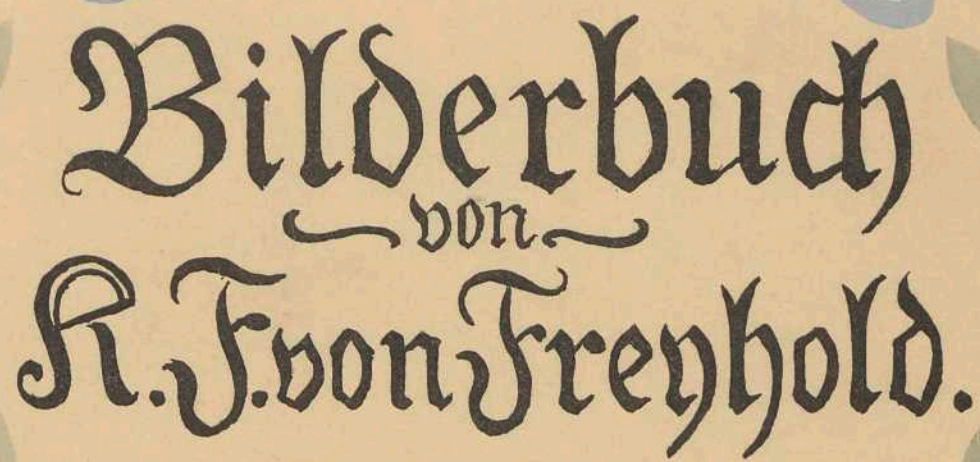 Bilderbuch
von
K. F. von Freyhold.